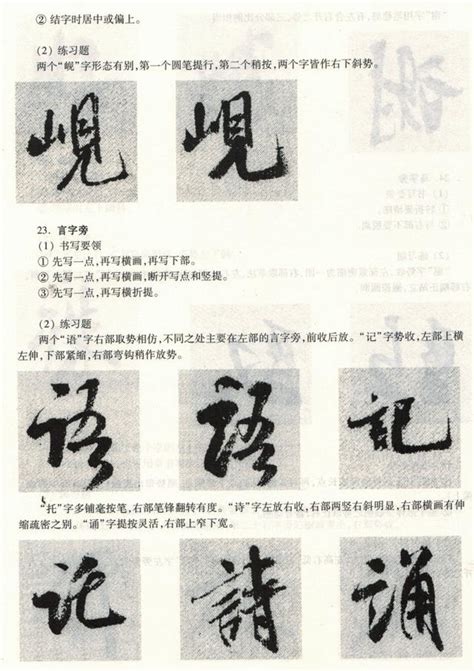 ② 结字时居中或偏上。
(2) 练习题
两个“岘”字形态有别,第一个圆笔提行,第二个稍按,两个字皆作右下斜势。
峴 峴
23. 言字旁
(1) 书写要领
① 先写一点,再写横画,再写下部。
② 先写一点,再写横画,断开写点和竖提。
③ 先写一点,再写横折提。
(2) 练习题
两个“语”字右部取势相仿,不同之处主要在左部的言字旁,前收后放。“记”字势收,左部上横
左伸,下部紧缩,右部弯钩稍作放势。
语 语 記
“托”字多铺毫按笔,右部笔锋翻转有度。“诗”字左放右收,右部两竖右斜明显,右部横画有伸
缩疏密之别。“诵”字提按灵活,右部上窄下宽。
託 詩 诵